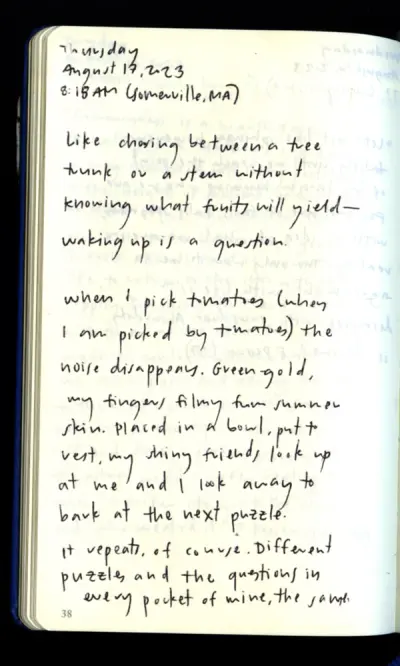 Thursday
August 17, 2023
8:18 AM (Somerville, MA)
Like chosing between a tree
trunk or a stem without
knowing what fruits will yield—
waking up is a question.
When I pick tomatoes (when
I am picked by tomatoes) the
noise disappears. Green-gold,
my fingers filmy from summer
skin. Placed in a bowl, put to
rest, my shiny friends look up
at me and I look away to
bark at the next puzzle.
It repeats, of course. Different
puzzles and the questions in
every pocket of mine, the same
38